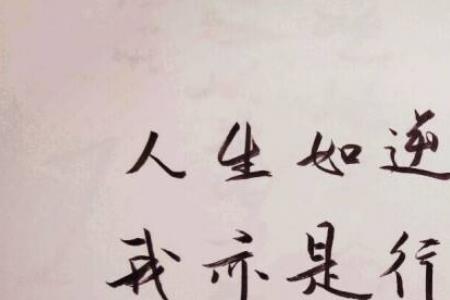 人生如逆
我亦是行